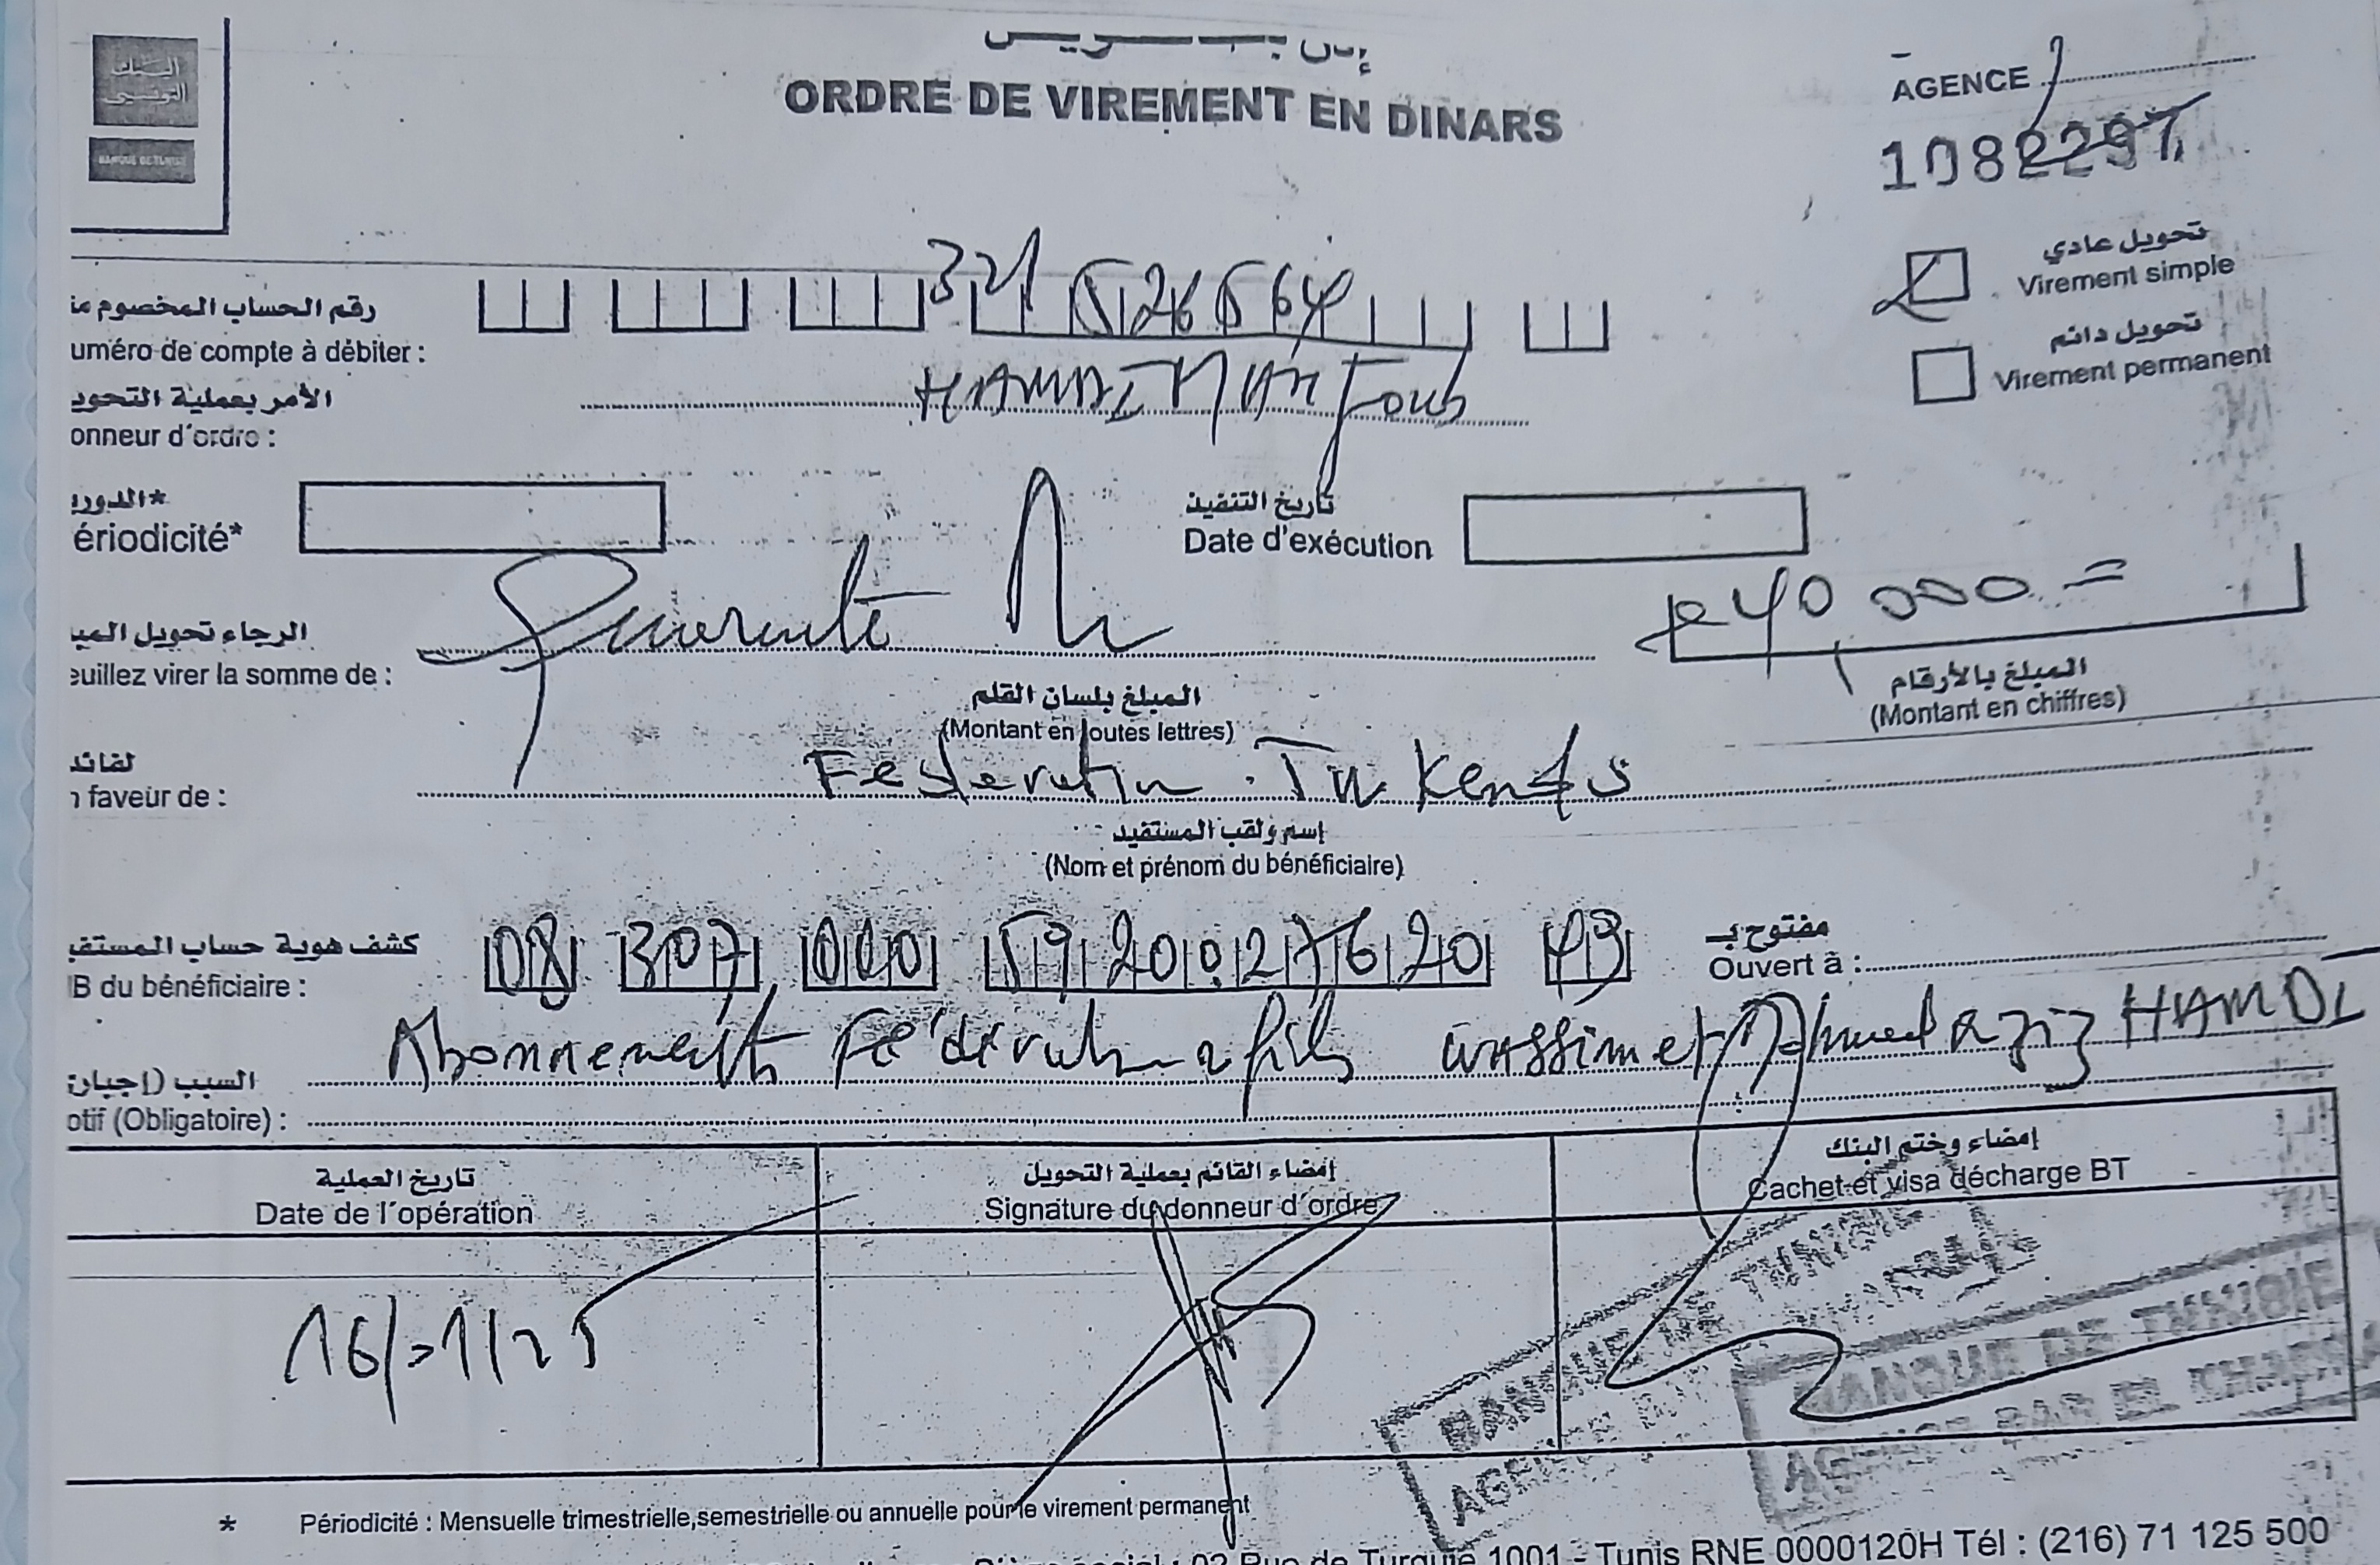 البنك
التونسي
BANQUE DE TUNISIE
ORDRE DE VIREMENT EN DINARS
AGENCE
1082297
تحويل عادي
Virement simple
تحويل دائم
Virement permanent
رقم الحساب المخصوم
uméro de compte à débiter :
الأمر بعملية التحوي
onneur d'ordre :
HAMDI
*الدورية
ériodicité*
تاريخ التنفيذ
Date d'exécution
الرجاء تحويل المبـ
euillez virer la somme de :
quarante
40 000 =
المبلغ بلسان القلم
(Montant en toutes lettres)
المبلغ بالأرقام
(Montant en chiffres)
لفائد
n faveur de :
Federation Tu Kendo
إسم ولقب المستفيد
(Nom et prénom du bénéficiaire)
كشف هوية حساب المستفـ
IB du bénéficiaire :
08 307 000 59 20 0 276 20 49
مفتوح بـ
Ouvert à :
Abonnements Fédération a fils wassim et Mohamed aziz HAMDI
السبب (إجباري
otif (Obligatoire) :
تاريخ العملية
Date de l'opération
إمضاء القائم بعملية التحويل
Signature du donneur d'ordre
إمضاء وختم البنك
Cachet et visa décharge BT
16/01/25
BANQUE DE TUNISIE
BANQUE DE TUNISIE
AGENCE BAB EL KHADRA
* Périodicité : Mensuelle trimestrielle,semestrielle ou annuelle pour le virement permanent
Siège social : 02 Rue de Turquie 1001 - Tunis RNE 0000120H Tél : (216) 71 125 500